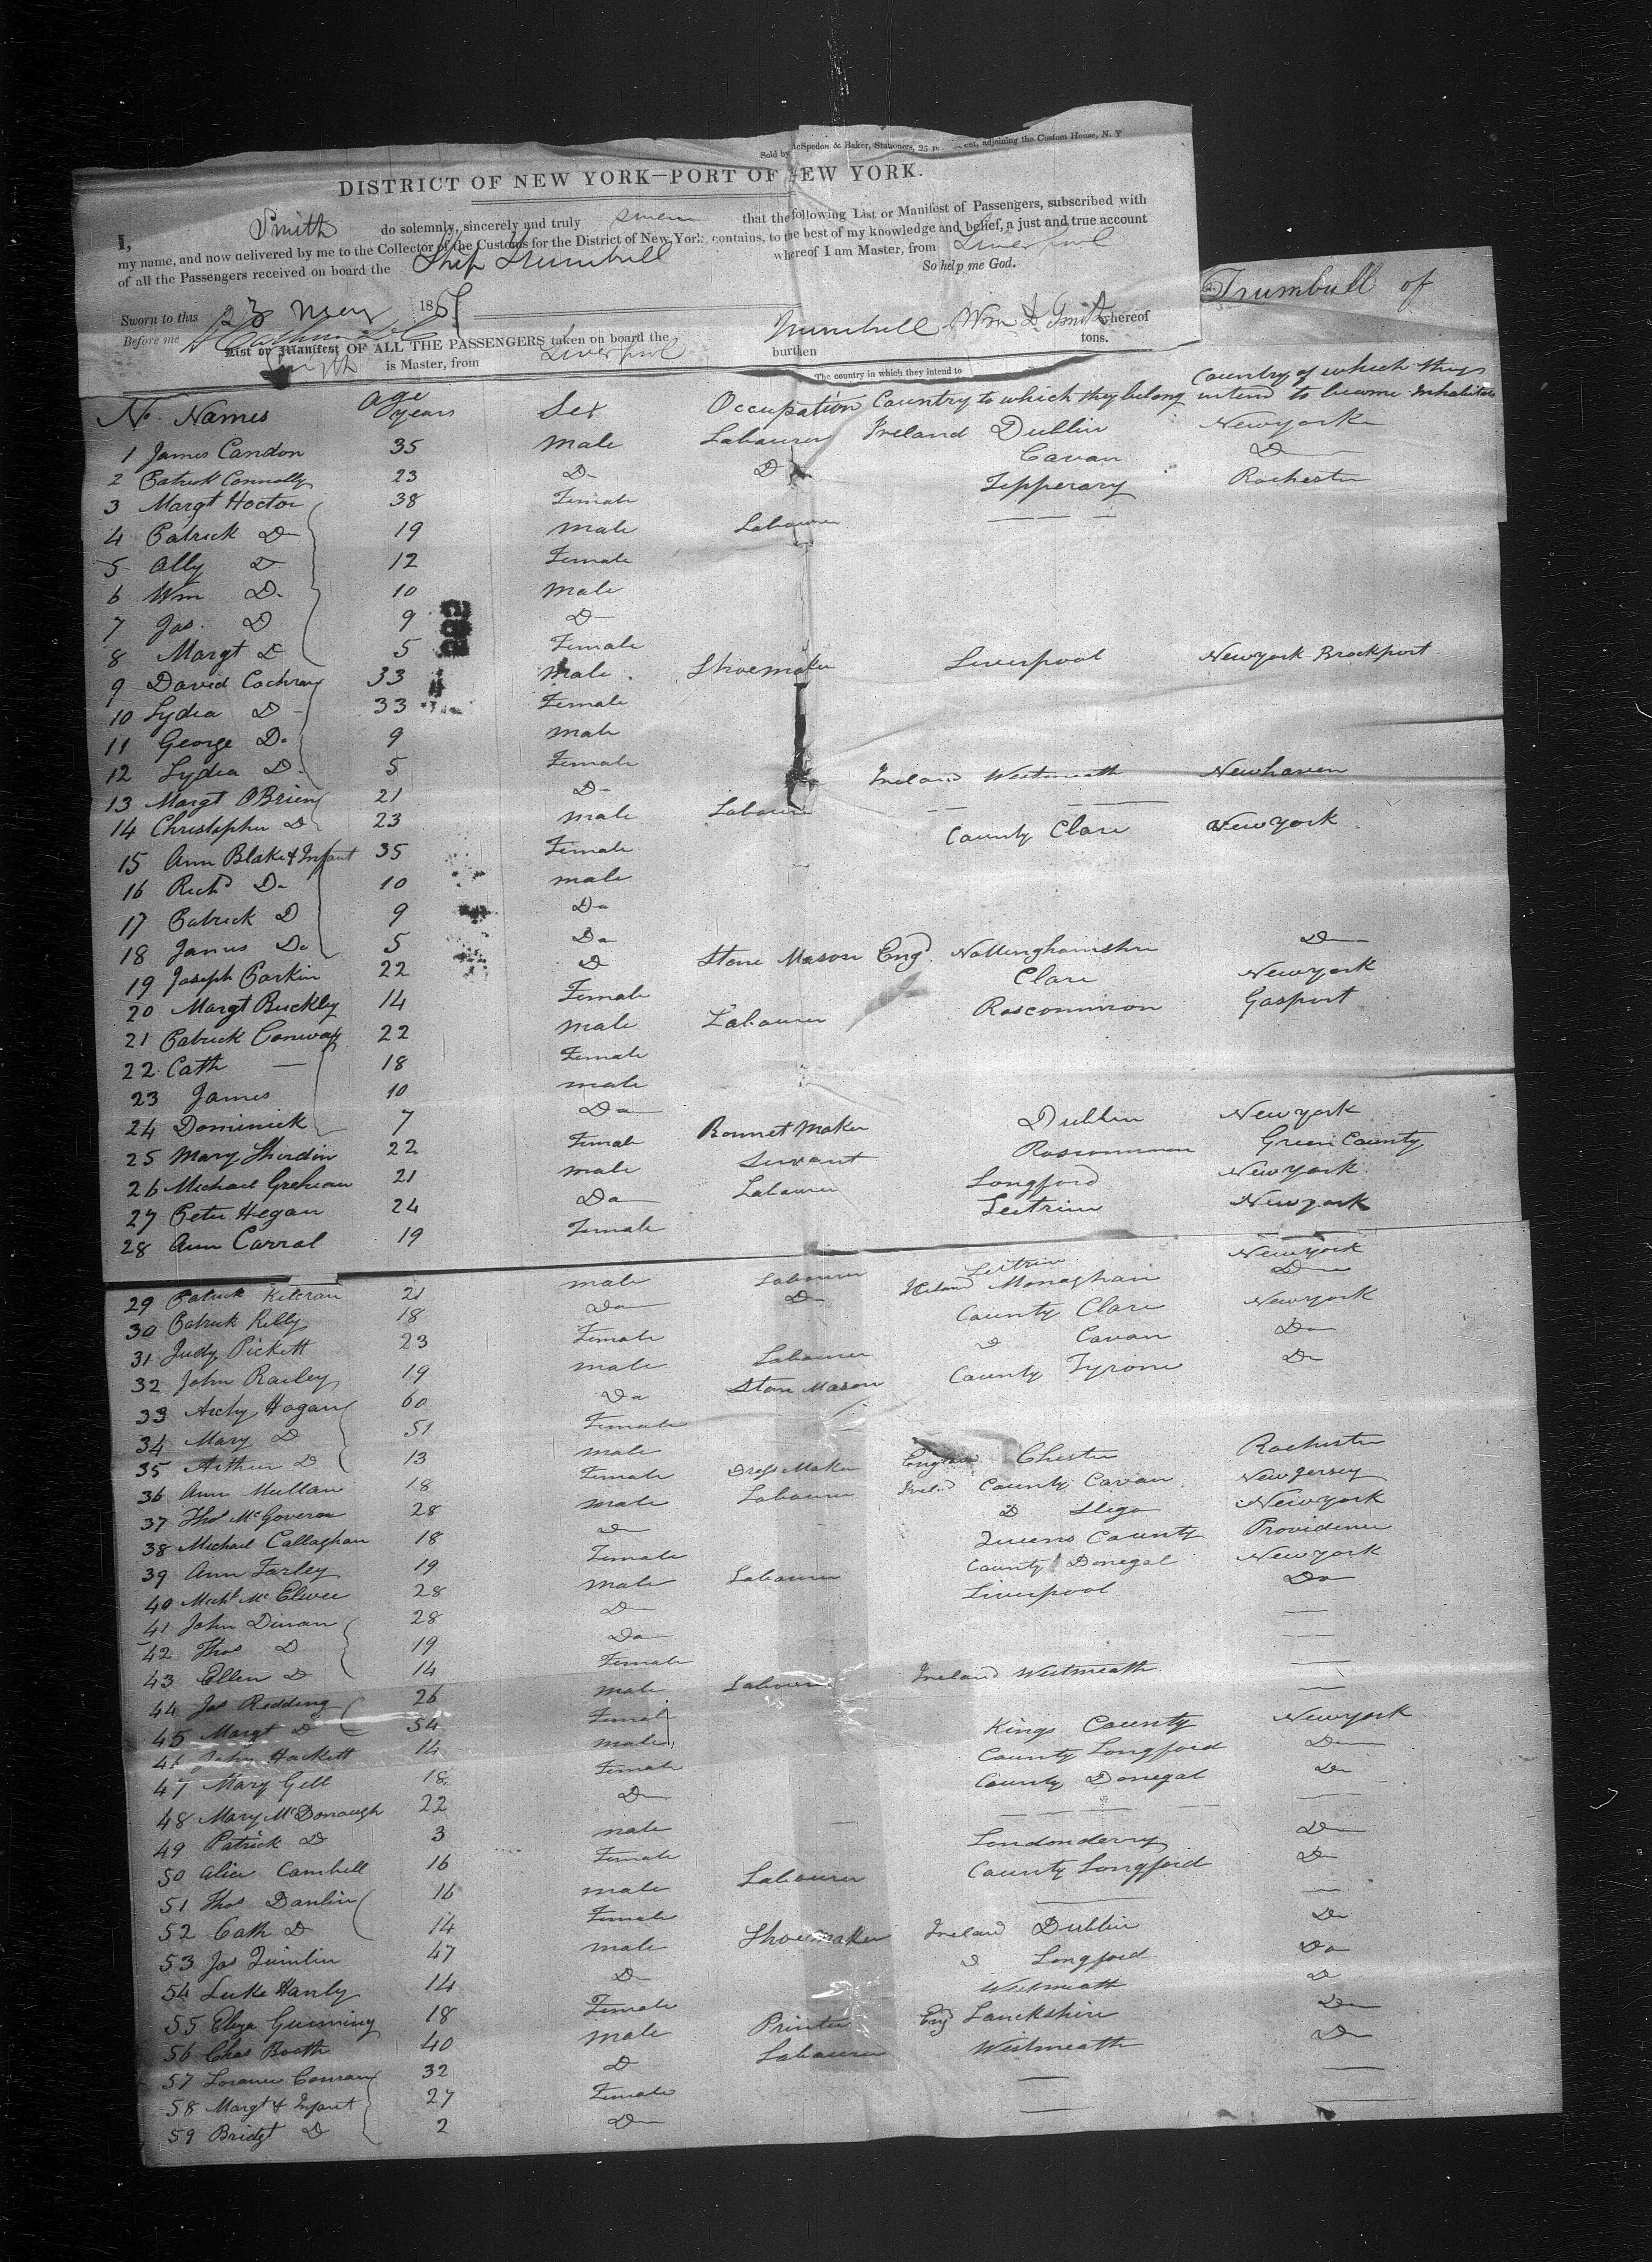 Sold by McSpedon & Baker, Stationers, 25 adjoining the Custom House, N. Y
DISTRICT OF NEW YORK—PORT OF NEW YORK.
I, Smith do solemnly, sincerely and truly swear that the following List or Manifest of Passengers, subscribed with
my name, and now delivered by me to the Collector of the Customs for the District of New York, contains, to the best of my knowledge and belief, a just and true account
of all the Passengers received on board the Ship Trumbull whereof I am Master, from Liverpool
So help me God.
Sworn to this 23 May 185
Before me
Trumbull of
List or Manifest OF ALL THE PASSENGERS taken on board the Trumbull Wm L Smith whereof
Smith is Master, from Liverpool burthen tons.
The country in which they intend to
No. Names Age years Sex Occupation Country to which they belong Country of which they intend to become Inhabitants
1 James Candon 35 Male Labourer Ireland Dublin Newyork
2 Patrick Connolly 23 Do D Cavan D
3 Margt Hoctor 38 Female Tipperary Rochester
4 Patrick D 19 Male Labourer — — —
5 Ally D 12 Female
6 Wm D. 10 Male
7 Jas. D 9 D
8 Margt D 5 Female
9 David Cochran 33 Male Shoemaker Liverpool Newyork Brockport
10 Lydia D 33 Female
11 George Do 9 Male
12 Lydia D. 5 Female
13 Margt OBrien 21 D Ireland Westmeath Newhaven
14 Christopher D 23 Male Labourer — —
15 Ann Blake & Infant 35 Female County Clare Newyork
16 Richd Do 10 Male
17 Patrick D 9 Do
18 James Do 5 Do
19 Joseph Parkin 22 D Stone Mason Engd. Nottinghamshire D
20 Margt Buckley 14 Female Clare Newyork
21 Patrick Conway 22 Male Labourer Roscommon Gasport
22 Cath — 18 Female
23 James 10 Male
24 Dominick 7 Do
25 Mary Sherdin 22 Female Bonnet Maker Dublin Newyork
26 Michael Greheun 21 Male Servant Roscommon Green County
27 Peter Hegan 24 Do Labourer Longford Newyork
28 Ann Carral 19 Female Leitrim Newyork
29 Patrick Kilcran 21 Male Labourer Leitrim Newyork
30 Patrick Rilly 18 Do D Ireland Monaghan D
31 Judy Pickett 23 Female County Clare Newyork
32 John Railey 19 Male Labourer D Cavan Do
33 Archy Hogan 60 Do Stone Mason County Tyrone Do
34 Mary D 51 Female
35 Arthur D 13 Male
36 Ann Mullan 18 Female Dress Maker England Chester Rochester
37 Thos McGovern 28 Male Labourer Ireld County Cavan New Jersey
38 Michael Callaghan 18 D D Sligo Newyork
39 Ann Farley 19 Female Queens County Providence
40 Michl McElwee 28 Male Labourer County Donegal Newyork
41 John Dinan 28 D Liverpool Do
42 Thos D 19 Do — —
43 Ellen D 14 Female — —
44 Jas Redding 26 Male Labourer Ireland Westmeath —
45 Margt D 54 Female —
46 John Hackett 14 Male Kings County Newyork
47 Mary Gill 18 Female County Longford D
48 Mary McDonough 22 D County Donegal D
49 Patrick D 3 Male — — —
50 Alice Cambell 16 Female Londonderry D
51 Thos Danlin 16 Male Labourer County Longford D
52 Cath D 14 Female — —
53 Jas Quinlin 47 Male Shoemaker Ireland Dublin Do
54 Luke Hanly 14 D D Longford Do
55 Eliza Gunning 18 Female Westmeath D
56 Chas Booth 40 Male Printer Eng Lanckshire Do
57 Conran 32 D Labourer Westmeath Do
58 Margt & Infant 27 Female — —
59 Bridgt D 2 D — —